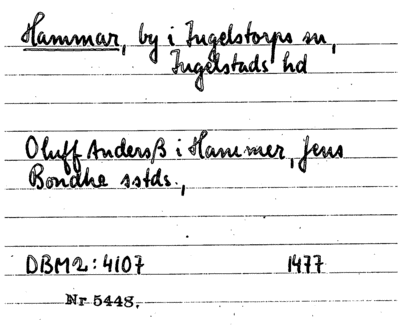 Hammar, by i Ingelstorps sn,
Ingelstads hd
Oluff Anderß i Hammer, Jens
Bondhe sstds.,
DBM2:4107 1477
Nr 5448.